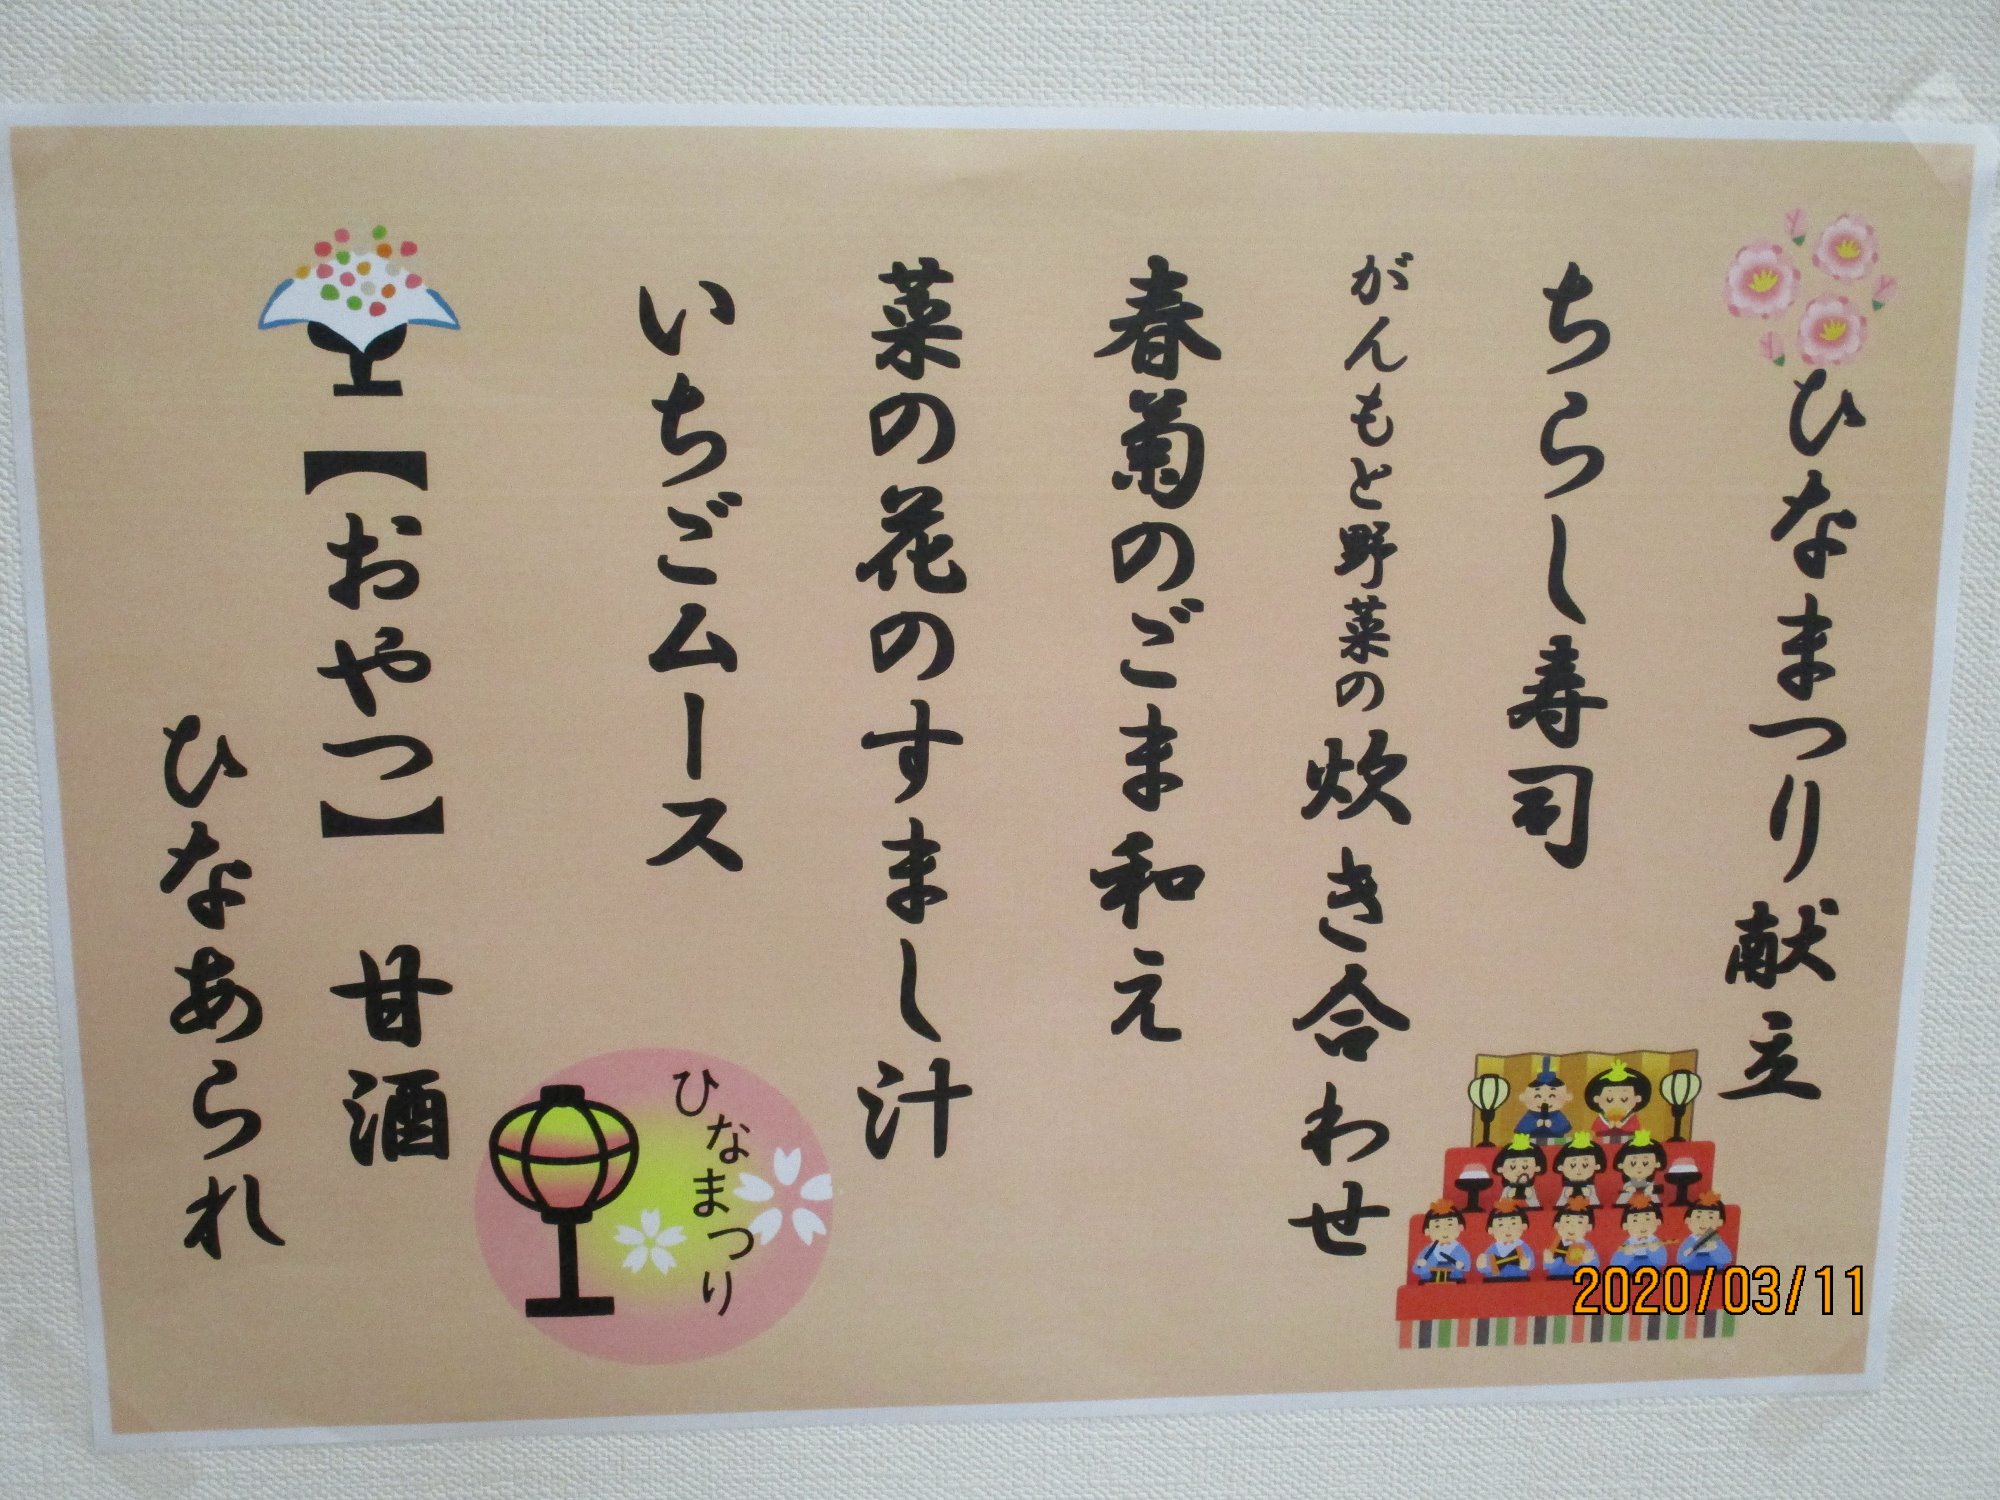 ひなまつり献立
ちらし寿司
がんもと野菜の炊き合わせ
春菊のごま和え
菜の花のすまし汁
いちごムース
【おやつ】 甘酒
ひなあられ
ひなまつり
2020/03/11